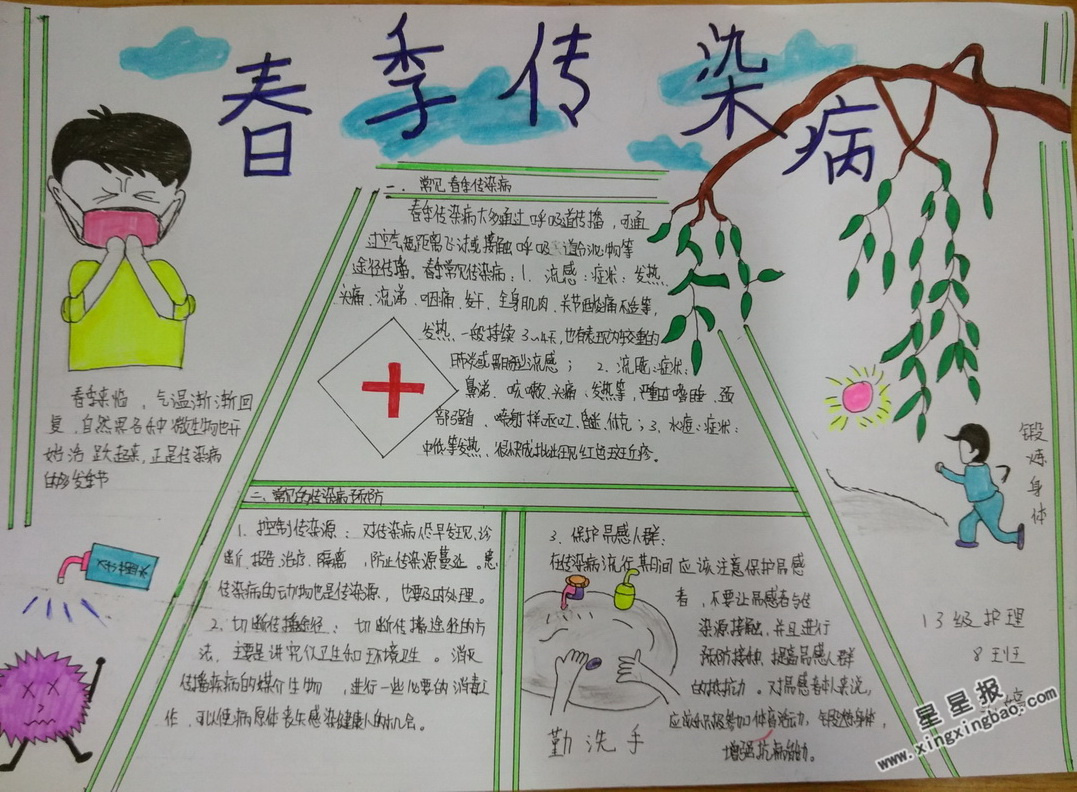 春季传染病
一．常见春季传染病
春季传染病大多通过呼吸道传播，可通
过空气短距离飞沫或接触呼吸道分泌物等
途径传播。春季常见传染病：1．流感：症状：发热、
头痛、流涕、咽痛、干、全身肌肉、关节酸痛不适等，
发热一般持续3~4天，也有表现为较重的
肺炎或胃肠型流感； 2．流脑：症状：
鼻涕、咳嗽、头痛、发热等，严重口嗜睡、颈
部强直、喷射样呕吐、；3．水痘：症状：
中低等发热、很快成批出现红色斑丘疹。
春季来临，气温渐渐回
复，自然界各种微生物也开
始活跃起来，正是传染病
的多发季节
二．常见的传染病预防
1．控制传染源：对传染病尽早发现、诊
断、报告、治疗、隔离，防止传染源蔓延。患
传染病的动物也是传染源，也要及时处理。
2．切断传播途径：切断传播途径的方
法，主要是讲究个人卫生和环境卫生。消灭
传播疾病的媒介生物，进行一些必要的消毒工
作，可以使病原体丧失感染健康人的机会。
3．保护易感人群：
在传染病流行期间应该注意保护易感
者，不要让易感者与传
染源接触，并且进行
预防接种，提高易感人群
的抵抗力。对易感者本人来说，
应该积极参加体育活动，锻炼身体，
增强抗病能力。
勤洗手
锻炼身体
13级护理
8班
星星报
www.xingxingbao.com